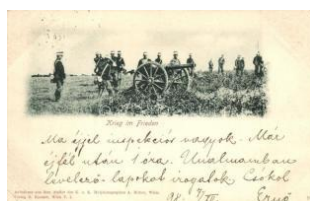 Krieg im Frieden
Ma éjjel inspekciós vagyok. Már
éjfél után 1 óra. Unalmamban
levelező-lapokat irogatok Csókol
98. 9/IV. Ernő